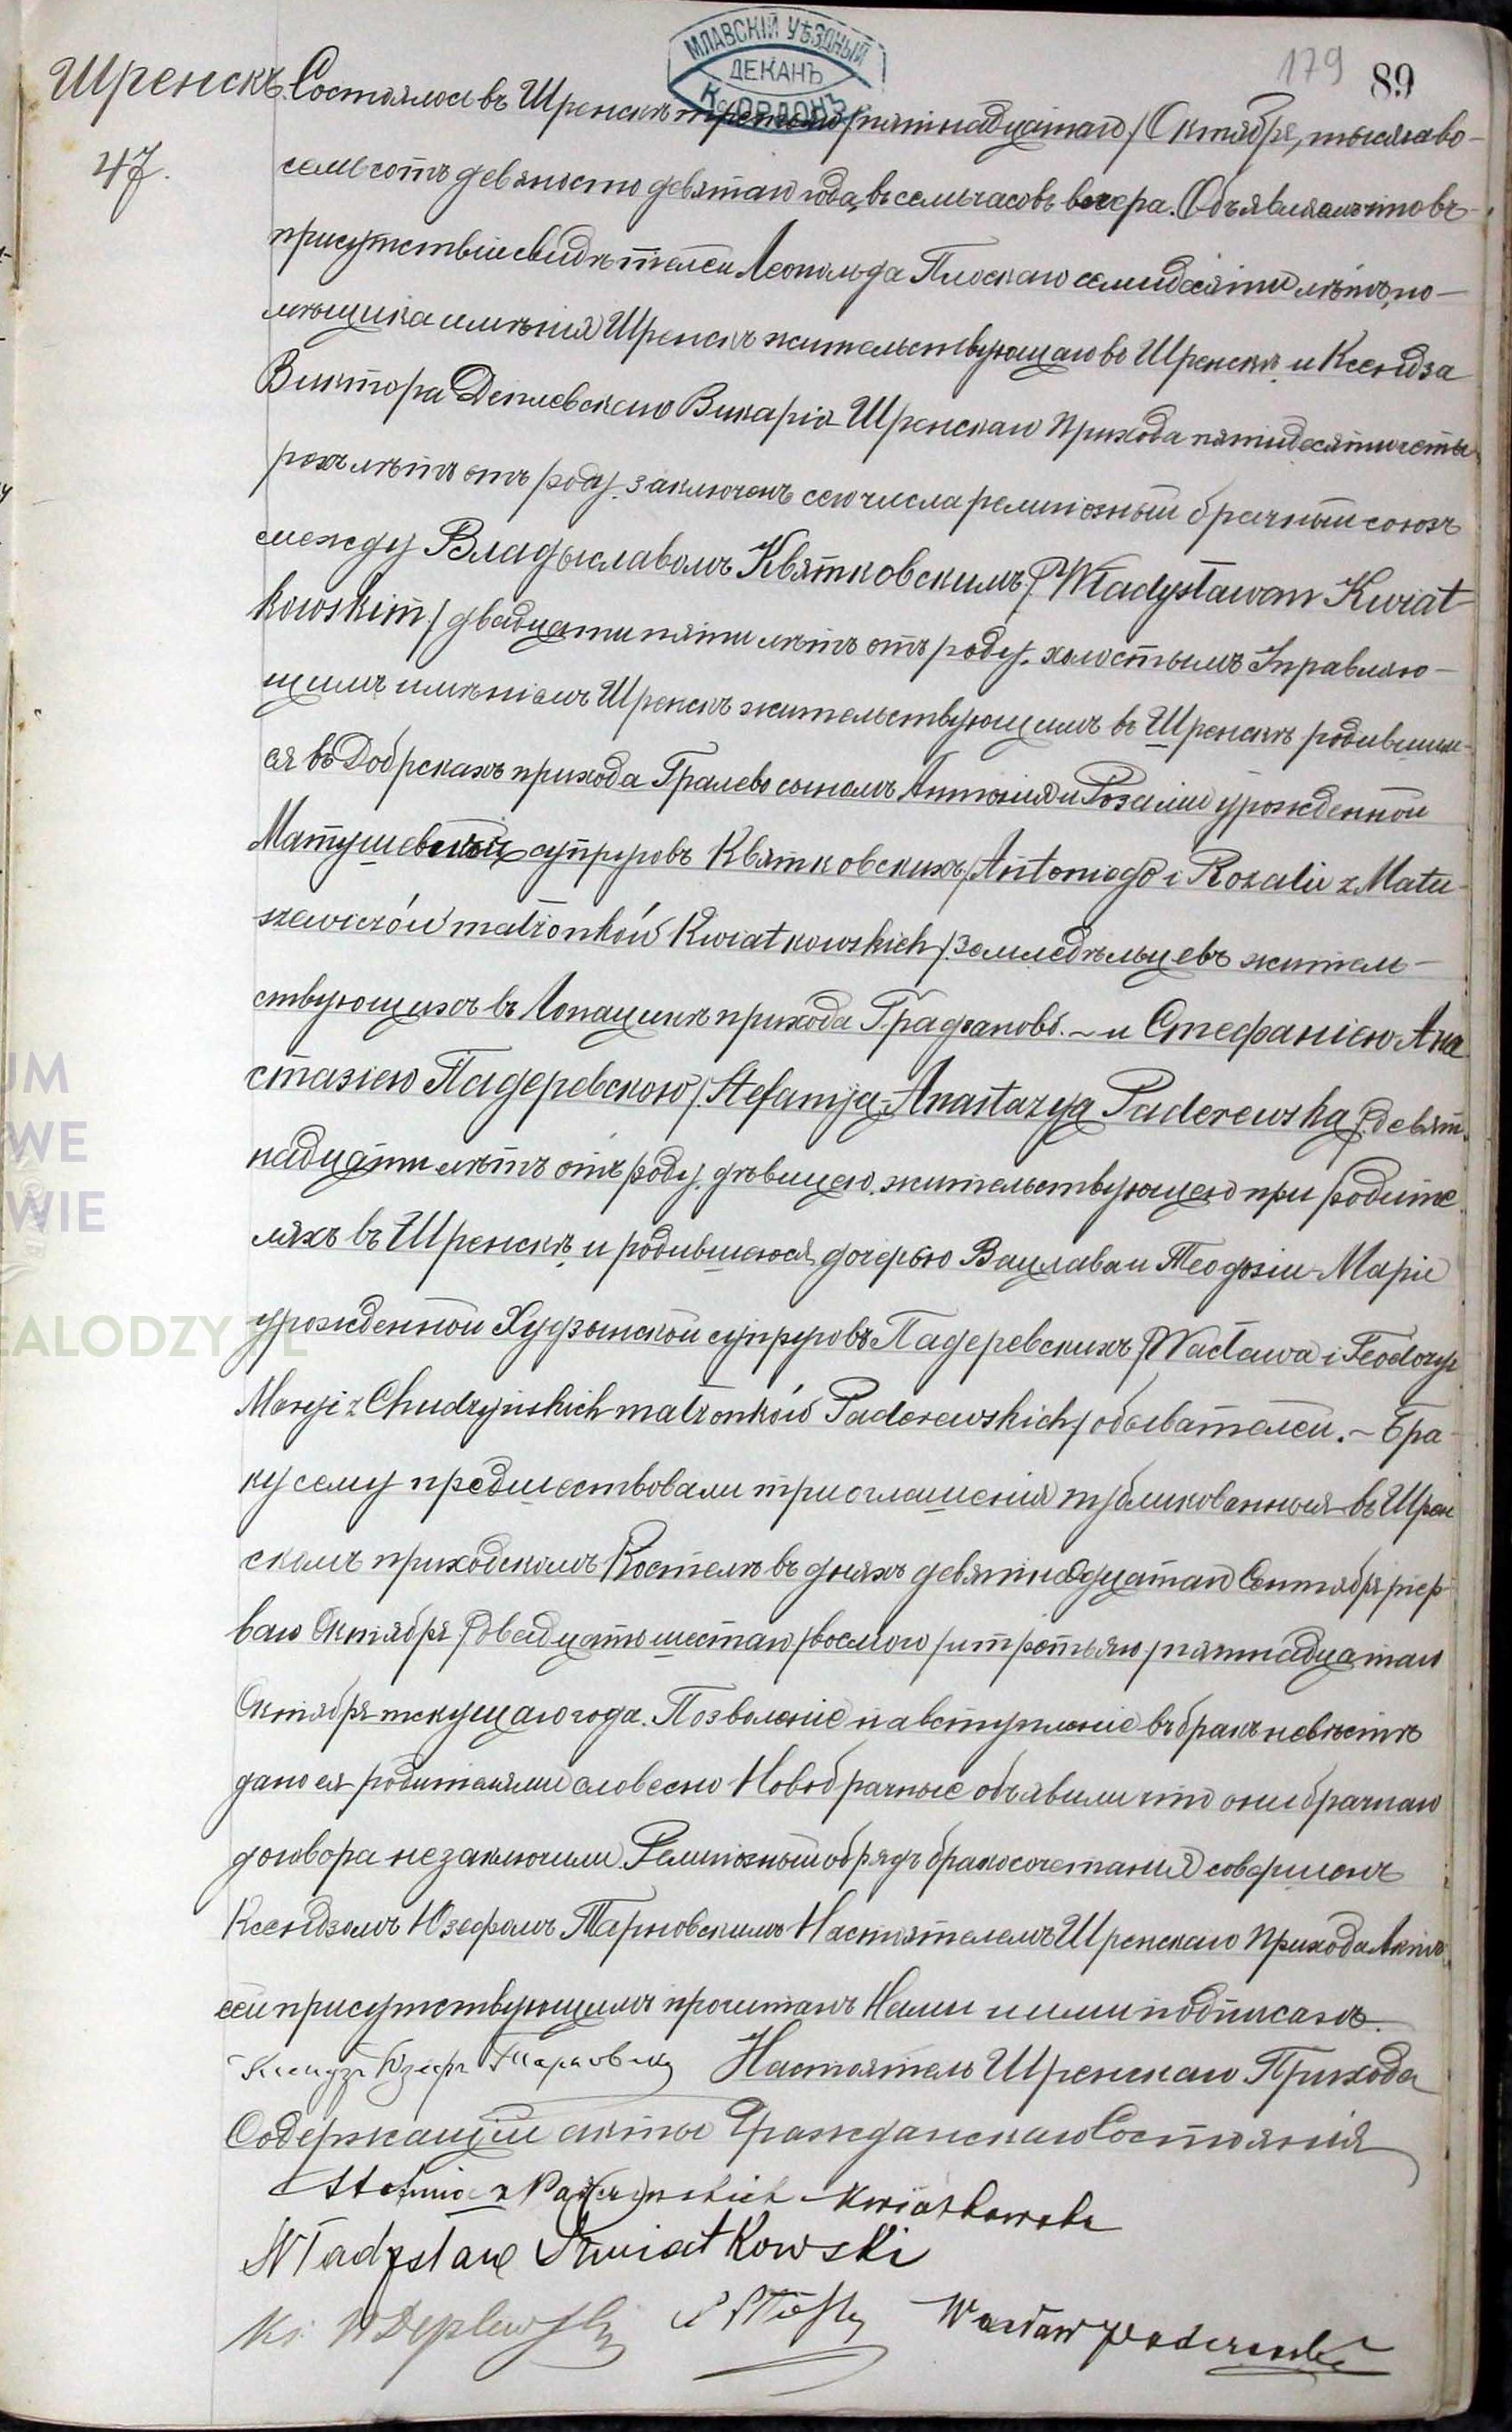 МЛАВСКІЙ УѢЗДНЫЙ
ДЕКАНЪ
179 89
Шренскъ
47.
Состоялось въ Шренскѣ третьяго /пятнадцатаго/ Октября, тысяча во-
семьсотъ девяносто девятаго года, въ семь часовъ вечера. Объявляемъ что въ
присутствіи свидѣтелей Леопольда Плоскаго семидесяти лѣтъ, по-
мѣщика имѣнія Шренскъ жительствующаго въ Шренскѣ и Ксендза
Виктора Деплевскаго Викарія Шренскаго Прихода пятидесяти четы
рехъ лѣтъ отъ роду, заключенъ сего числа религіозный брачный союзъ
между Владыславомъ Квятковскимъ /Władysławem Kwiat
kowskim/ двадцати пяти лѣтъ отъ роду, холостымъ Управляю-
щимъ имѣніемъ Шренскъ жительствующимъ въ Шренскѣ родившим-
ся въ Добрскахъ прихода Гралево сыномъ Антонія и Розаліи урожденной
Матушевичъ супруговъ Квятковскихъ /Antoniego i Rozalii z Matu-
szewiczów małżonków Kwiatkowskich/ земледѣльцевъ житель-
ствующихъ въ прихода .~ и Стефаніею Ана
стазіею Падеревскою /Stefaniją-Anastazyą Paderewską/ девят-
надцати лѣтъ отъ роду, дѣвицею, жительствующею при родите
ляхъ въ Шренскѣ, и родившеюся дочерью Вацлава и Теодозіи-Маріи
урожденной Худзынской супруговъ Падеревскихъ /Wacława i Teodozyi
Maryi z Chudzyńskich małżonków Paderewskich/ обывателей.~ Бра-
ку сему предшествовали три оглашенія публикованныя въ Шрен
скомъ приходскомъ Костелѣ въ дняхъ девятнадцатаго Сентября /пер-
ваго Октября/ двадцать шестаго /восьмого/ и третьяго /пятнадцатаго
Октября текущаго года. Позволеніе на вступленіе въ бракъ невѣстѣ
дано ея родителями словесно Новобрачные объявили что они брачнаго
договора не заключили. Религіозный обрядъ бракосочетанія совершенъ
Ксендзомъ Юзефомъ Тарновскимъ Настоятелемъ Шренскаго Прихода Актъ
сей присутствующимъ прочитанъ Нами и ими подписанъ.
Ксендзъ Юзефъ Тарновскій Настоятель Шренскаго Прихода
Содержащій акты Гражданскаго Состоянія
Stefania z Paderewskich Kwiatkowska
Władysław Kwiatkowski
Ks. W Deplewski Wacław Paderewski